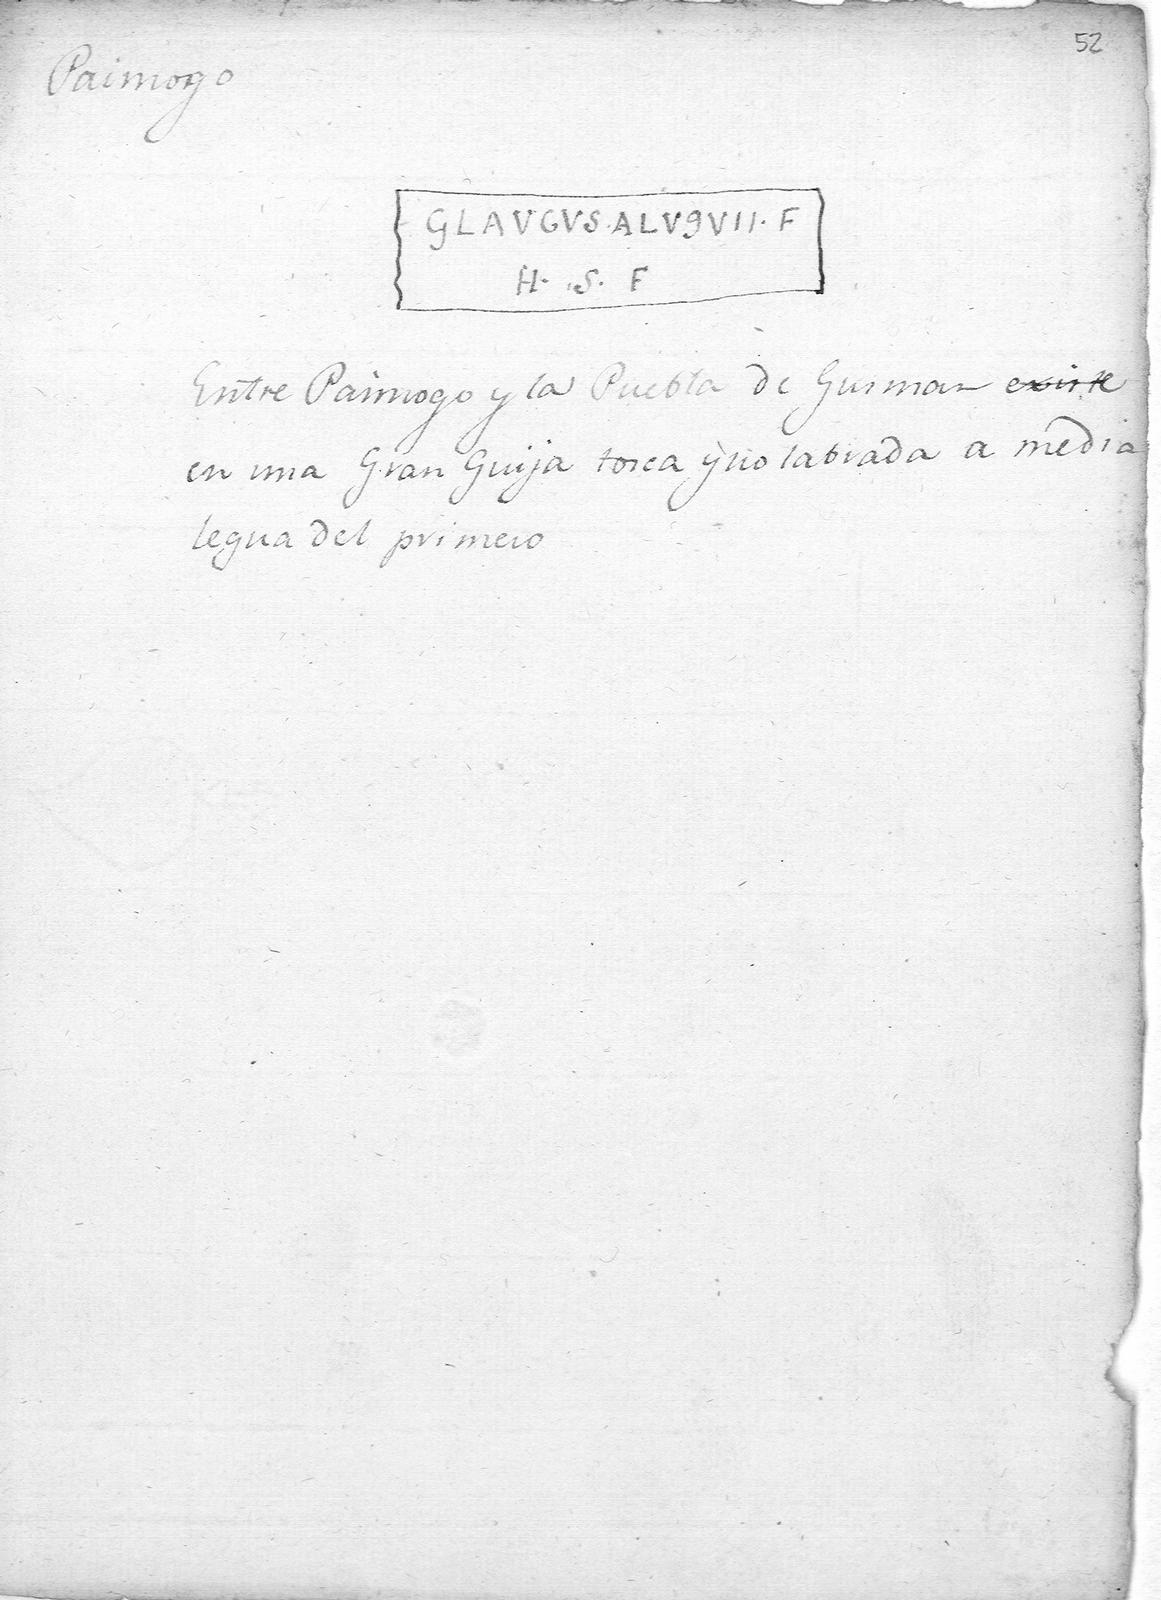 52
Paimogo
GLAVGVS·ALV9VII·F
H· S· F
Entre Paimogo y la Puebla de Gusman existe
en una Gran Guija tosca y no labrada a media
legua del primero